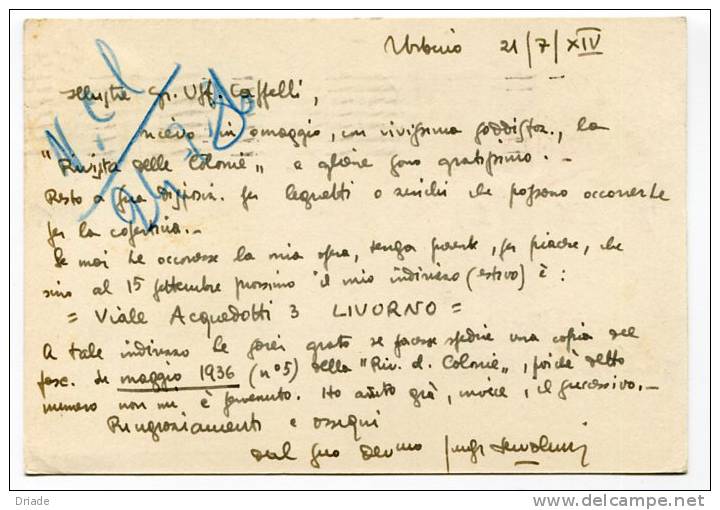 Urbino 21/7/XIV
Illustre Gr. Uff. Cappelli,
ricevo in omaggio, con vivissima soddisfaz., la
"Rivista delle Colonie" e gliene sono gratissimo.-
Resto a Sua disposiz. per legnetti o zinchi che possono occorrerle
per la copertina.-
Se mai Le occoresse la mia opera, tenga presente, per piacere, che
sino al 15 settembre prossimo il mio indirizzo (estivo) è:
= Viale Acquedotti 3 LIVORNO =
A tale indirizzo Le sarei grato se facesse spedire una copia del
fasc. di maggio 1936 (n° 5) della "Riv. d. Colonie", poiché detto
numero non mi è pervenuto. Ho avuto già, invece, il successivo.-
Ringraziamenti e ossequi
dal Suo dev.mo Luigi Servolini
Driade
© delcampe.net